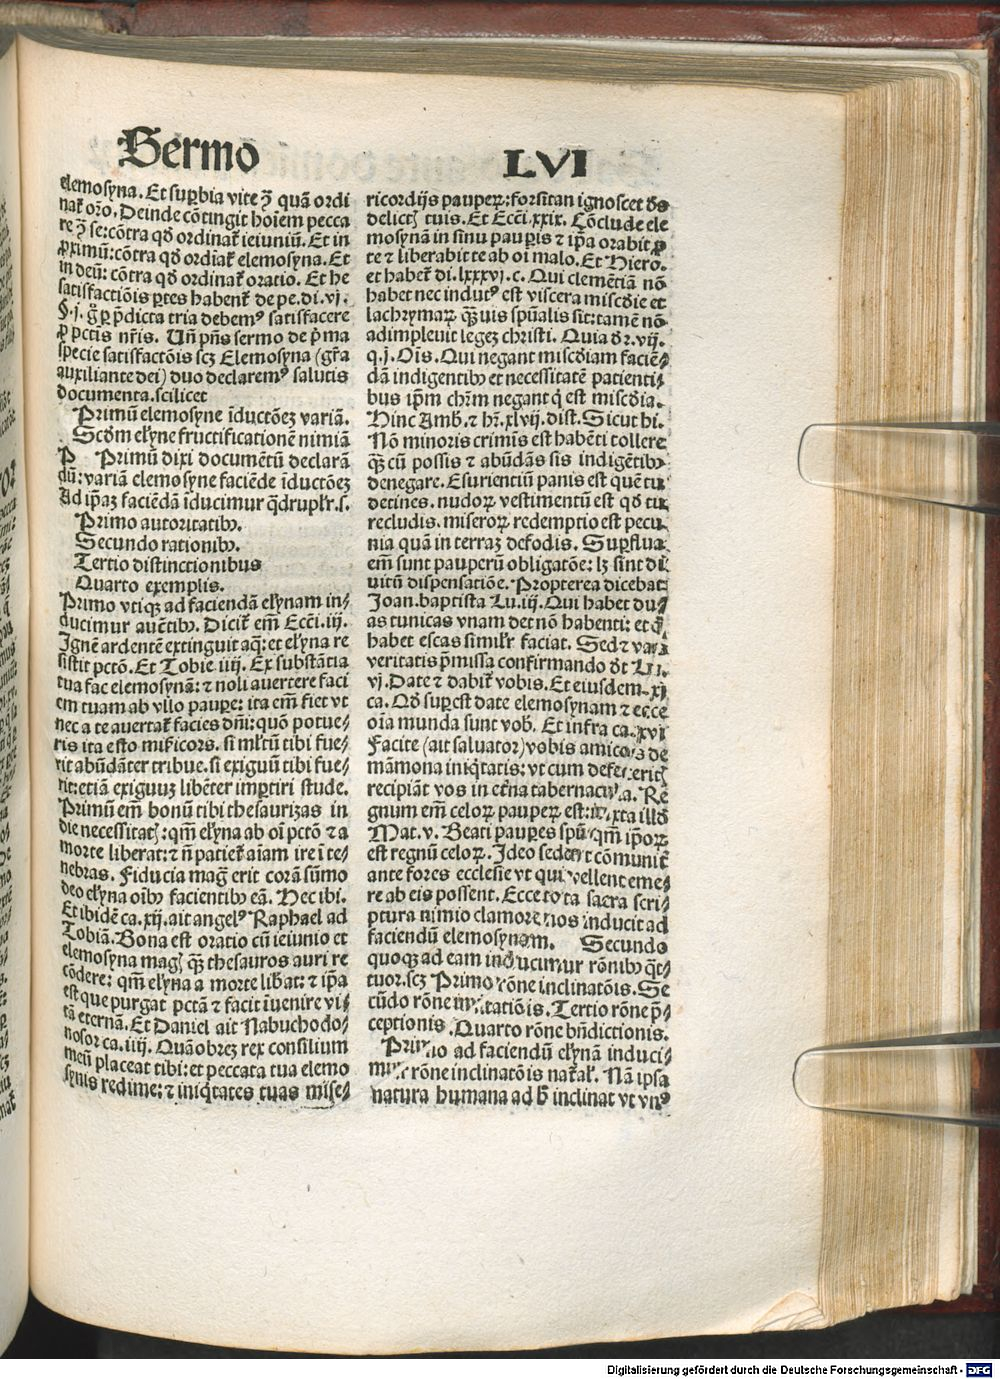 Sermo
LVI
elemosyna. Et suꝑbia vite ꝫ̄ quā ordi
nat̄ oro. Deinde cōtingit hoīem pecca
re ꝫ̄ se: cōtra qđ ordinat̄ ieiuniū. Et in
ꝓximū: cōtra qđ ordiat̄ elemosyna. Et
in deū: cōtra qđ ordinat̄ oratio. Et he
satisfactiōis ꝑtes habent̄ de pe. di. vj.
§. j. g̊ ꝑ p̄dicta tria debemꝰ satisfacere
ꝓ pctis nr̄is. Un̄ pn̄s sermo de p̄ma
specie satisfactōis scꝫ Elemosyna (gr̄a
auxiliante dei) duo declaremꝰ salutis
documenta. scilicet
Primū elemosyne īductōeꝫ variā.
Scđm elȳne fructificationē nimiā
P Primū dixi documētū declarā
dū: variā elemosyne faciēde īductōeꝫ
Ad ip̄aꝫ faciēdā īducimur q̄druplr̄. s.
Primo autoritatibꝰ.
Secundo rationibꝰ.
Tertio distinctionibus
Quarto exemplis.
Primo vtiqꝫ ad faciendā elȳnam in⸗
ducimur auc̄tibꝰ. Dicit̄ em̄ Ecc̄i. iij.
Ignē ardentē extinguit aq̄: et elȳna re
sistit pctō. Et Tobie iiij. Ex substātia
tua fac elemosynā: ⁊ noli avertere faci
em tuam ab vllo pauꝑe: ita em̄ fiet vt
nec a te auertat̄ facies dn̄i: quō potue⸗
ris ita esto miẜicors. si ml̄tū tibi fue⸗
rit abūdāter tribue. si exiguū tibi fue⸗
rit: etiā exiguuꝫ libēter imꝑtiri stude.
Primū em̄ bonū tibi thesaurizas in
die necessitatꝭ: qm̄ elȳna ab oī pctō ⁊ a
morte liberat: ⁊ n̄ patiet̄ aīam ire ī te⸗
nebras. Fiducia maḡ erit corā sūmo
deo elȳna oībꝰ facientibꝰ eā. Hec ibi.
Et ibidē ca. xij. ait angelꝰ Raphael ad
Tobiā. Bona est oratio cū ieiunio et
elemosyna magꝭ q̄ꝫ thesauros auri re
cōdere: qm̄ elȳna a morte libat: ⁊ ip̄a
est que purgat pctā ⁊ facit īuenire vi⸗
tā eternā. Et Daniel ait Nabuchodo⸗
nosor ca. iiij. Quāobreꝫ rex consilium
meū placeat tibi: et peccata tua elemo
synis redime: ⁊ iniq̇tates tuas mise⸗
ricordijs pauꝑeꝝ: forsitan ignoscet đs
delictꝭ tuis. Et Ecc̄i. xxix. Cōclude ele
mosynā in sinu pauꝑis ⁊ ip̄a orabit ꝓ
te ⁊ liberabit te ab oī malo. Et Hiero.
et habet̄ di. lxxxvj. c. Qui clemētiā nō
habet nec indutꝰ est viscera misc̄die et
lachrymaꝝ. q̄ꝫuis spūalis sit: tamē nō
adimpleuit legeꝫ christi. Quia đr. vij.
q. j. Oīs. Qui negant misc̄diam faciē⸗
dā indigentibꝰ et necessitatē patienti⸗
bus ip̄m chr̄m negant q̇ est misc̄dia.
Hinc Amb. ⁊ hr̄. xlvij. dist. Sicut hi.
Nō minoris crimīs est habēti tollere
q̄ꝫ cū possis ⁊ abūdās sis indigētibꝰ
denegare. Esurientiū panis est quē tu
detines. nudoꝝ vestimentū est qđ tu
recludis. miseroꝝ redemptio est pecu
nia quā in terraꝫ defodis. Suꝑflua
em̄ sunt pauperū obligatōe: lꝫ sint di
uitū dispensatiōe. Propterea dicebat
Joan. baptista Lu. iij. Qui habet du⸗
as tunicas vnam det nō habenti: et q̇
habet escas simil̄r faciat. Sed ⁊
veritatis p̄missa confirmando đt Lu.
vj. Date ⁊ dabit̄ vobis. Et eiusdem. xj
ca. Qđ suꝑest date elemosynam ⁊ ecce
oīa munda sunt vob̄. Et infra ca. xvj
Facite (ait saluator) vobis amicos de
māmona iniq̇tatis: vt cum defeceritꝭ
recipiāt vos in et̄na tabernacula. Re
gnum em̄ celoꝝ pauꝑeꝝ est: iuxta illđ
Mat. v. Beati pauꝑes spū qm̄ ip̄oꝝ
est regnū celoꝝ. Ideo sedent cōmunit̄
ante fores ecclesie vt qui vellent eme⸗
re ab eis possent. Ecce tota sacra scri⸗
ptura nimio clamore nos inducit ad
faciendū elemosynam. Secundo
quoqꝫ ad eam inducimur rōnibꝰ q̄t⸗
tuor. scꝫ Primo rōne inclinatōis. Se
cūdo rōne imitatiōis. Tertio rōne p̄⸗
ceptionis. Quarto rōne bn̄dictionis.
Primo ad faciendū elȳnā induci⸗
mur rōne inclinatōis nat̄al̄. Nā ipsa
natura humana ad ḣ inclinat vt vnꝰ
Digitalisierung gefördert durch die Deutsche Forschungsgemeinschaft - DFG